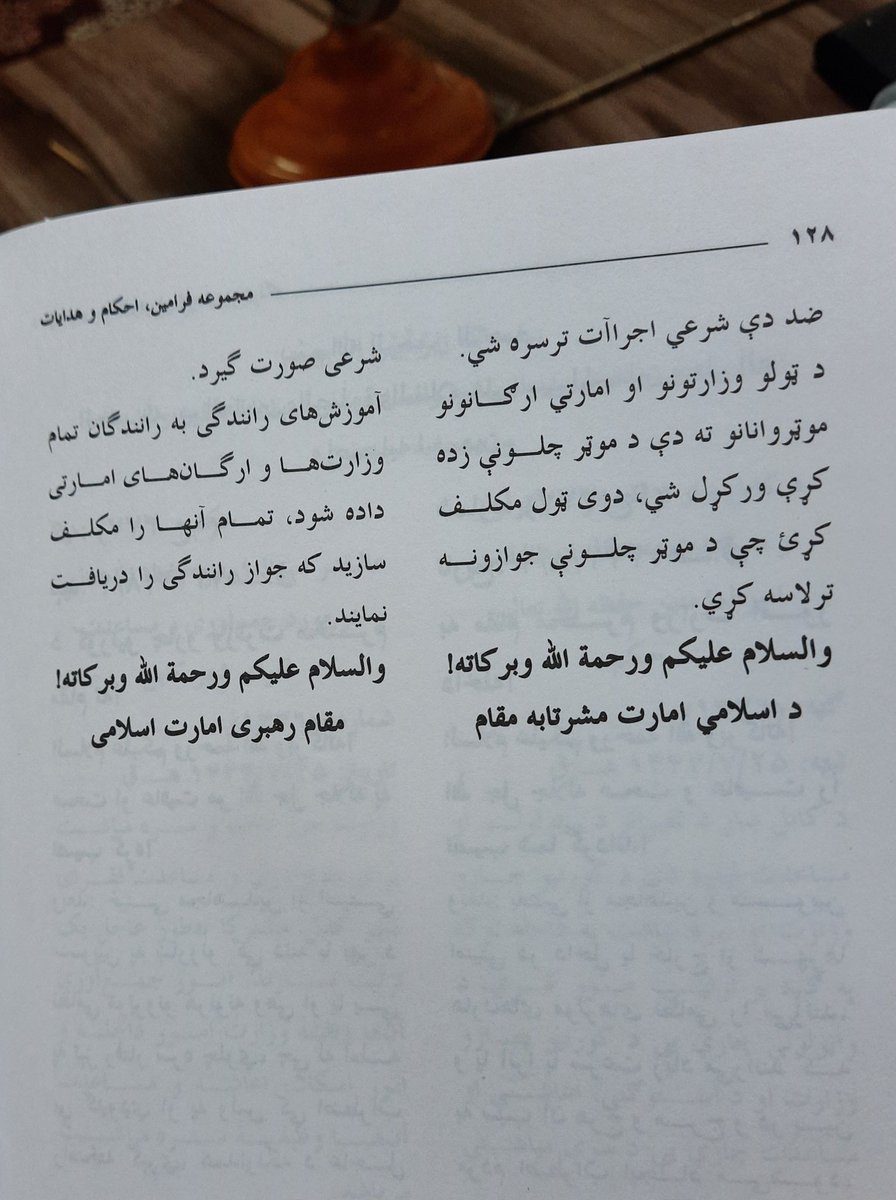 ۱۲۸
مجموعه فرامین، احکام و هدایات
ضد دې شرعي اجراآت ترسره شي.
د ټولو وزارتونو او امارتي ارګانونو
موټروانانو ته دې د موټر چلونې زده
کړې ورکړل شي، دوی ټول مکلف
کړئ چې د موټر چلونې جوازونه
ترلاسه کړي.
والسلام علیکم ورحمة الله وبرکاته!
د اسلامي امارت مشرتابه مقام
شرعی صورت گیرد.
آموزش‌های رانندگی به رانندگان تمام
وزارت‌ها و ارگان‌های امارتی
داده شود، تمام آنها را مکلف
سازید که جواز رانندگی را دریافت
نمایند.
والسلام علیکم ورحمة الله وبرکاته!
مقام رهبری امارت اسلامی